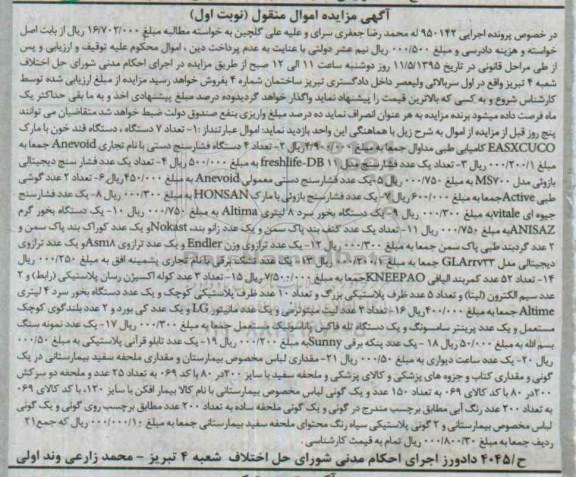 آگهی مزایده اموال منقول (نوبت اول)
در خصوص پرونده اجرایی ۹۵۰۱۴۲ له محمد رضا جعفری سرای و علیه علی گلچین به خواسته مطالبه مبلغ ۱۶/۷۰۲/۰۰۰ ریال از بابت اصل
خواسته و هزینه دادرسی و مبلغ ۰۰۰/۵۰۰ ریال نیم عشر دولتی با عنایت به عدم پرداخت دین ، اموال محکوم علیه توقیف و ارزیابی و پس
از طی مراحل قانونی در تاریخ ۱۱/۵/۱۳۹۵ روز دوشنبه ساعت ۱۱ الی ۱۲ صبح از طریق مزایده در اجرای احکام مدنی شورای حل اختلاف
شعبه ۴ تبریز واقع در اول سربالائی ولیعصر داخل دادگستری تبریز ساختمان شماره ۴ بفروش خواهد رسید مزایده از مبلغ ارزیابی شده توسط
کارشناس شروع و به کسی که بالاترین قیمت را پیشنهاد نماید واگذار خواهد گردیدوده درصد مبلغ پیشنهادی اخذ و به ما بقی حداکثر یک
ماه فرصت داده میشود برنده مزایده به هر عنوان انصراف نماید ده درصد مبلغ واریزی بنفع صندوق دولت ضبط خواهد شد متقاضیان می توانند
پنج روز قبل از مزایده از اموال به شرح زیل با هماهنگی این واحد بازدید نماید: اموال عبارتنداز :۱- تعداد ۷ دستگاه ، دستگاه قند خون با مارک
EASXCUCO کامپلی طبی مداول جمعا به مبلغ ۴/۹۰۰/۰۰۰ریال ۲- تعداد ۴ دستگاه فشارسنج دستی با نام تجاری Anevoid جمعا به
مبلغ ۰۰۰/۲۰۰/۱ ریال ۳- تعداد یک عدد فشارسنج مدل freshlife-DB۱۱ به مبلغ ۵۰۰/۰۰۰ ریال ۴- تعداد یک عدد فشار سنج دیجیتالی
بازوئی مدل MS۷۰۰ به مبلغ ۰۰۰/۷۵۰ ریال ۵-یک عدد فشارسنج دستی معمولی Anevoid به مبلغ ۴۵۰/۰۰۰ریال ۶- تعداد ۲ عدد گوشی
طبی Activeجمعا به مبلغ ۶۰۰/۰۰۰ ریال ۷- یک عدد فشارسنج بازوئی با مارک HONSAN به مبلغ ۰۰۰/۳۰۰ ریال ۸- یک عدد فشارسنج
جیوه ای vitaleبه مبلغ ۰۰۰/۳۰۰ ریال ۹- یک دستگاه بخور سرد ۸ لیتری Altima به مبلغ ۰۰۰/۷۵۰ ریال ۱۰- یک دستگاه بخور گرم
ANISAZبه مبلغ ۰۰۰/۷۵۰ ریال ۱۱- تعداد یک عدد کتف بند پاک سمن و یک عدد زانو بند، Nokastو یک عدد کوراک بند پاک سمن و
۲ عدد گردبند طبی پاک سمن جمعا به مبلغ ۰۰۰/۳۰۰ ریال ۱۲- یک عدد ترازوی وزن Endler و یک عدد ترازوی Asm۸و یک عدد ترازوی
دیجیتالی مدل GLArry۳۳ جمعا به مبلغ ریال ۱۳- یک عدد تشک برقی با نام تجاری پشمینه افق به مبلغ ۰۰۰/۲۵۰ ریال
۱۴- تعداد ۵۲ عدد کمربند الیافی KNEEPAOجمعا به مبلغ ۷/۵۰۰/۰۰۰ ریال ۱۵- تعداد ۳ عدد کوله اکسیژن رسان پلاستیکی (رابط) و ۲
عدد سیم الکترون (لیتا) و تعداد ۵ عدد ظرف پلاستیکی بزرگ و تعداد ۱۰ عدد ظرف پلاستیکی کوچک و یک عدد دستگاه بخور سرد ۴ لیتری
Altime جمعا به مبلغ ۴۰۰/۰۰۰ریال ۱۶- تعداد ۳ عدد لیت مینولزمی و یک عدد مانیتور LG و یک عدد کی بورد و ۲ عدد بلندگوی کوچک
مستعمل و یک عدد پرینتر سامسونگ و یک دستگاه تله فاکس پاناسونیک مستعمل جمعا به مبلغ ۰۰۰/۳۰۰ ریال ۱۷- یک عدد نمونه سنگ
بسم الله به مبلغ ۵۰/۰۰۰ ریال ۱۸- یک عدد پنکه برقی Sunnyبه مبلغ ۰۰۰/۲۰۰ ریال ۱۹- یک عدد تابلو قرآنی پلاستیکی به مبلغ ۰۰۰/۵۰
ریال ۲۰- یک عدد ساعت دیواری به مبلغ ۰۰۰/۵۰ ریال ۲۱- مقداری لباس مخصوص بیمارستان و مقداری ملحفه سفید بیمارستانی در یک
گونی و مقداری کتاب و جزوه های پزشکی و کالای پزشکی و ملحفه سفید با سایز ۲۰۰در ۸۰ با کد ۰۶۹ به تعداد ۲۵ عدد و ملحفه دو سرکش
۲۰۰در ۸۰ با کد کالای ۰۶۹ به تعداد ۱۵۰ عدد و یک گونی لباس مخصوص بیمارستانی با نام کالا بیمار افکن با سایز ۱۲۰، با کد کالای ۰۶۹
به تعداد ۲۰۰ عدد رنگ آبی مطابق برچسب مندرج در گونی و یک گونی ملحفه ساده به تعداد ۲۰۰ عدد مطابق برچسب روی گونی و یک گونی
لباس مخصوص بیمارستانی و ۲ گونی پلاستیکی سیاه رنگ محتوای ملحفه سفید بیمارستانی جمعا به مبلغ ۰۰۰/۰۰۰/۱۰ ریال که جمع۲۱
ردیف جمعا به مبلغ ۰۰۰/۸۰۰/۳۰ ریال تمام به قیمت کارشناسی.
ح/۴۰۴۵ دادورز اجرای احکام مدنی شورای حل اختلاف شعبه ۴ تبریز - محمد زارعی وند اولی